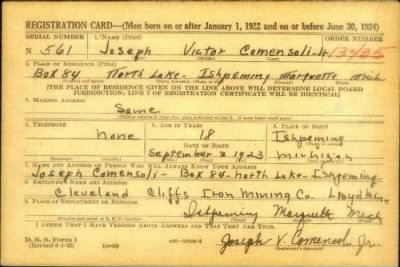 REGISTRATION CARD—(Men born on or after January 1, 1922 and on or before June 30, 1924)
SERIAL NUMBER 1. NAME (Print) ORDER NUMBER
N 561 Joseph Victor Comensoli Jr. 13435
2. PLACE OF RESIDENCE (Print)
Box 84 North Lake - Ishpeming Marquette Mich
(THE PLACE OF RESIDENCE GIVEN ON THE LINE ABOVE WILL DETERMINE LOCAL BOARD
JURISDICTION; LINE 2 OF REGISTRATION CERTIFICATE WILL BE IDENTICAL)
3. MAILING ADDRESS
Same
4. TELEPHONE 5. AGE IN YEARS 6. PLACE OF BIRTH
None 18 Ishpeming
DATE OF BIRTH
September 3 1923 Michigan
7. NAME AND ADDRESS OF PERSON WHO WILL ALWAYS KNOW YOUR ADDRESS
Joseph Comensoli - Box 84 - North Lake - Ishpeming
8. EMPLOYER'S NAME AND ADDRESS
Cleveland Cliffs Iron Mining Co. Lloyd Mine
9. PLACE OF EMPLOYMENT OR BUSINESS
Ishpeming Marquette Mich
I AFFIRM THAT I HAVE VERIFIED ABOVE ANSWERS AND THAT THEY ARE TRUE.
D. S. S. Form 1
Joseph V. Comensoli Jr.